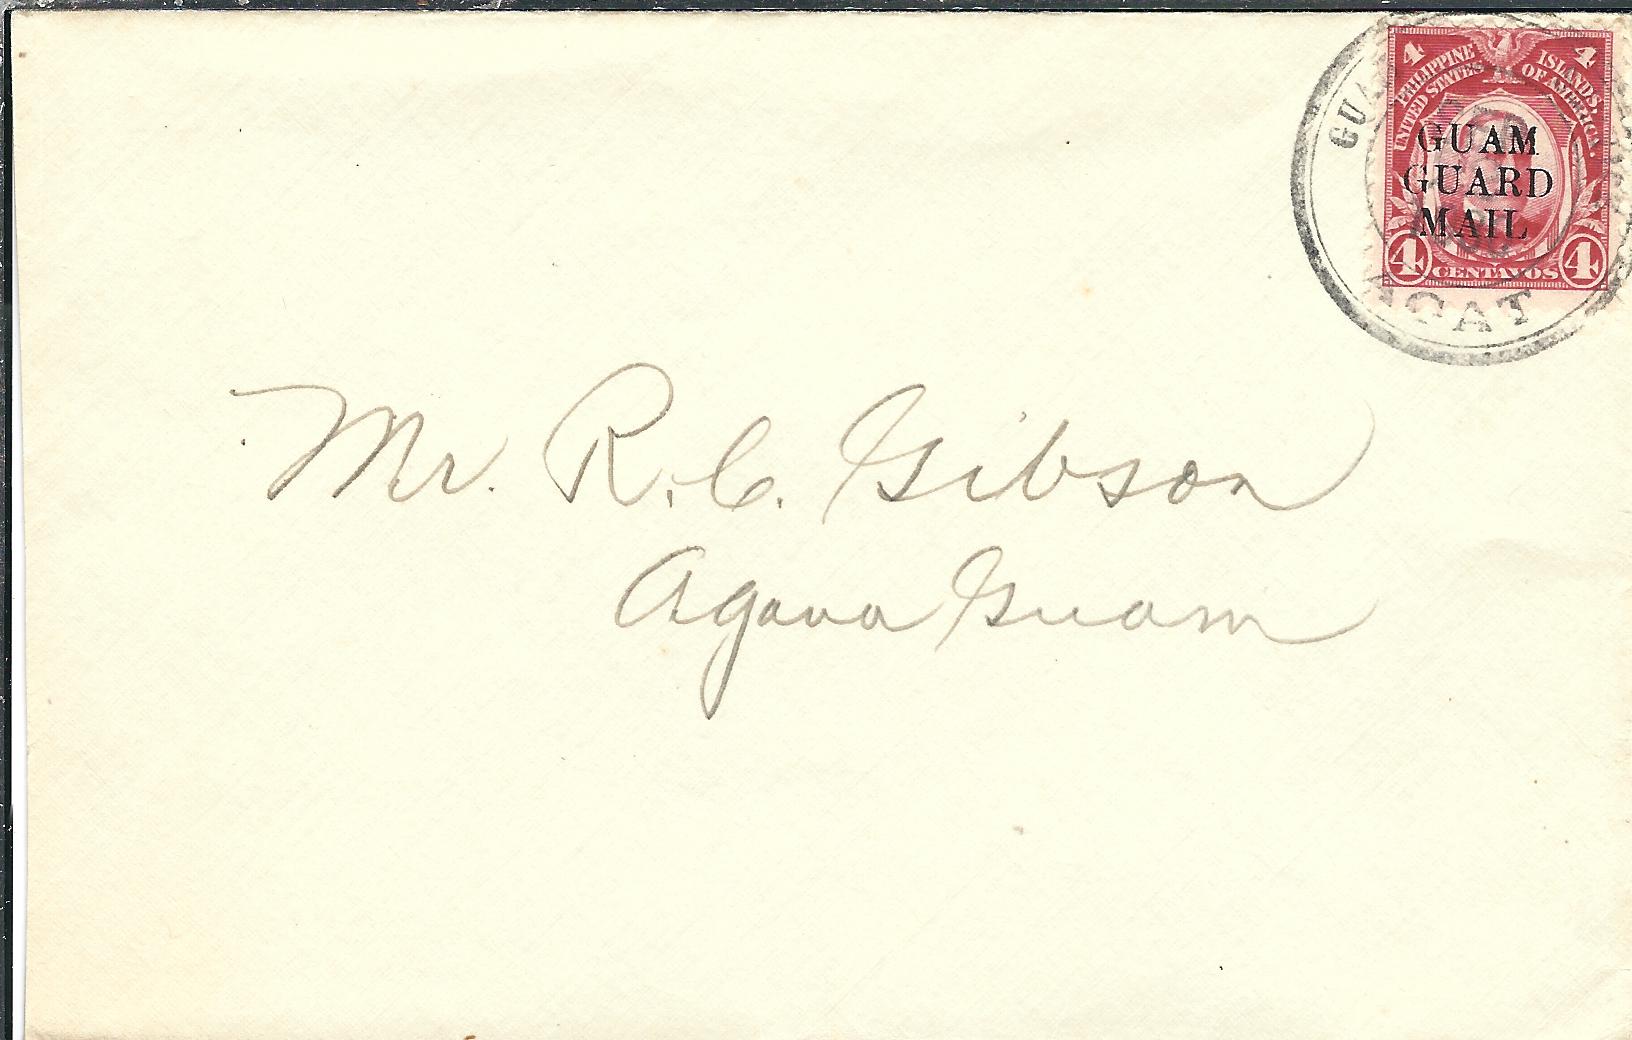 4 4
PHILIPPINE ISLANDS.
UNITED STATES OF AMERICA.
GUAM
GUARD
MAIL
4 CENTAVOS 4
AGAT
Mr. R. C. Gibson
Agana Guam